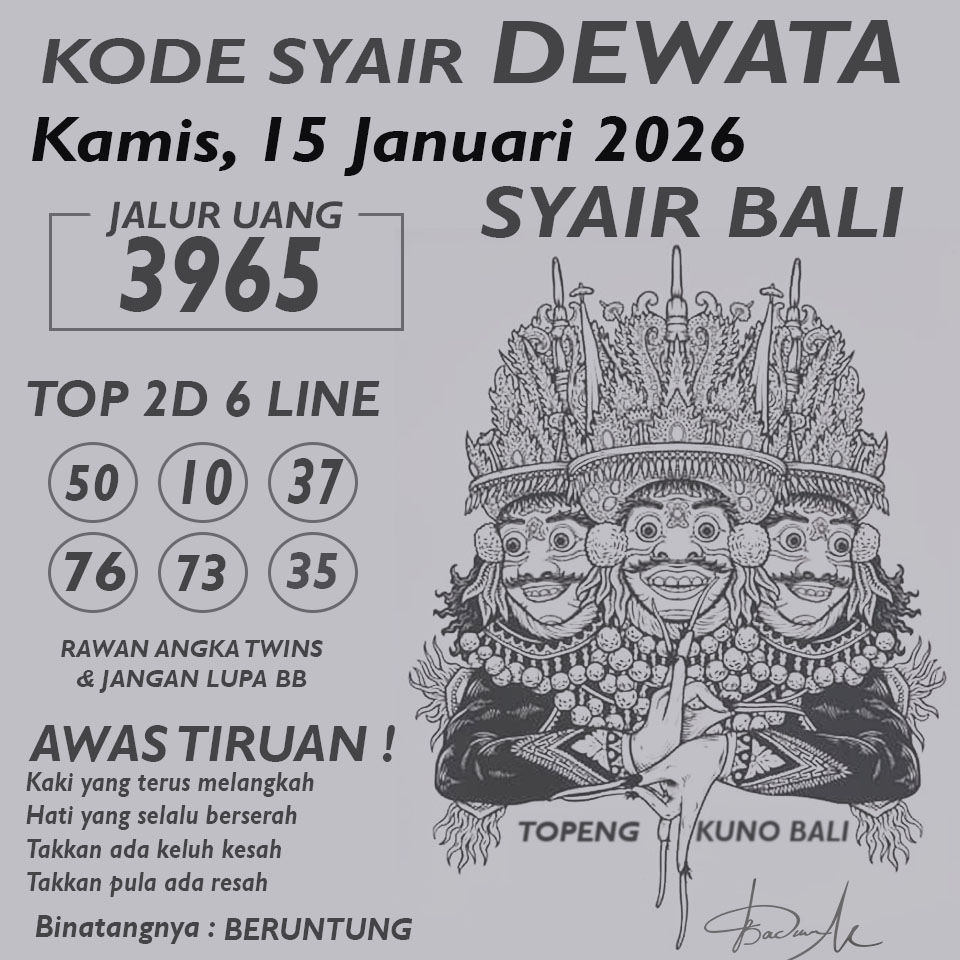 KODE SYAIR DEWATA
Kamis, 15 Januari 2026
SYAIR BALI
JALUR UANG
3965
TOP 2D 6 LINE
50 10 37
76 73 35
RAWAN ANGKA TWINS
& JANGAN LUPA BB
AWAS TIRUAN !
Kaki yang terus melangkah
Hati yang selalu berserah
Takkan ada keluh kesah
Takkan pula ada resah
Binatangnya : BERUNTUNG
TOPENG KUNO BALI